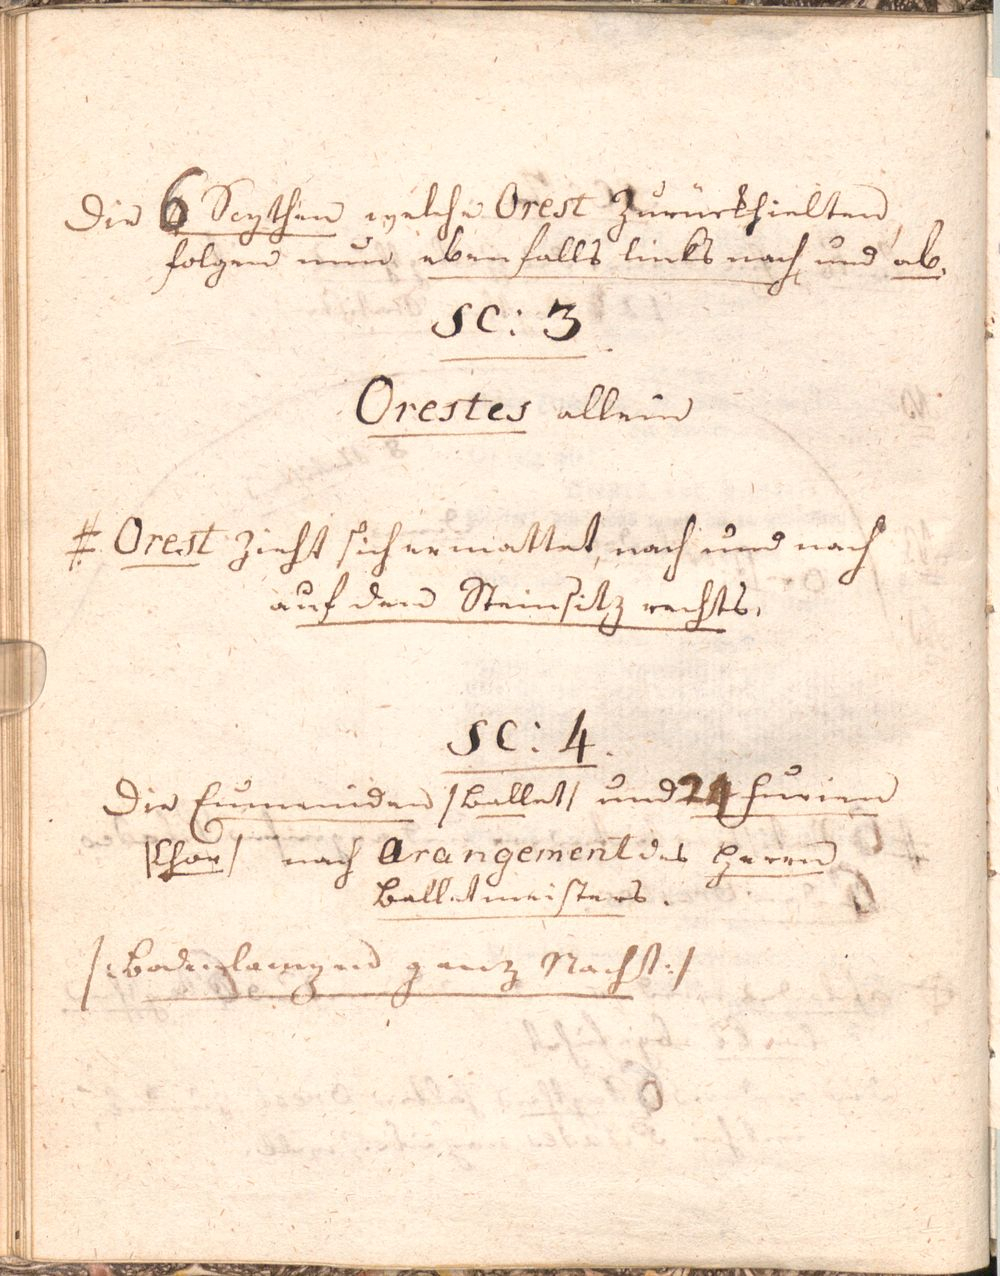 Die 6 Scythen welche Orest zurückhielten,
folgen nun ebenfalls links nach und ab.
SC: 3
Orestes allein
# Orest zieht sich ermattet nach und nach
auf den Steinsitz rechts.
SC: 4.
Die Eumeniden /Ballet/ und 24 Furien
/Chor/ nach Arangement des Herrn
Balletmeisters.
/: Bodenlampen ganz Nacht :/